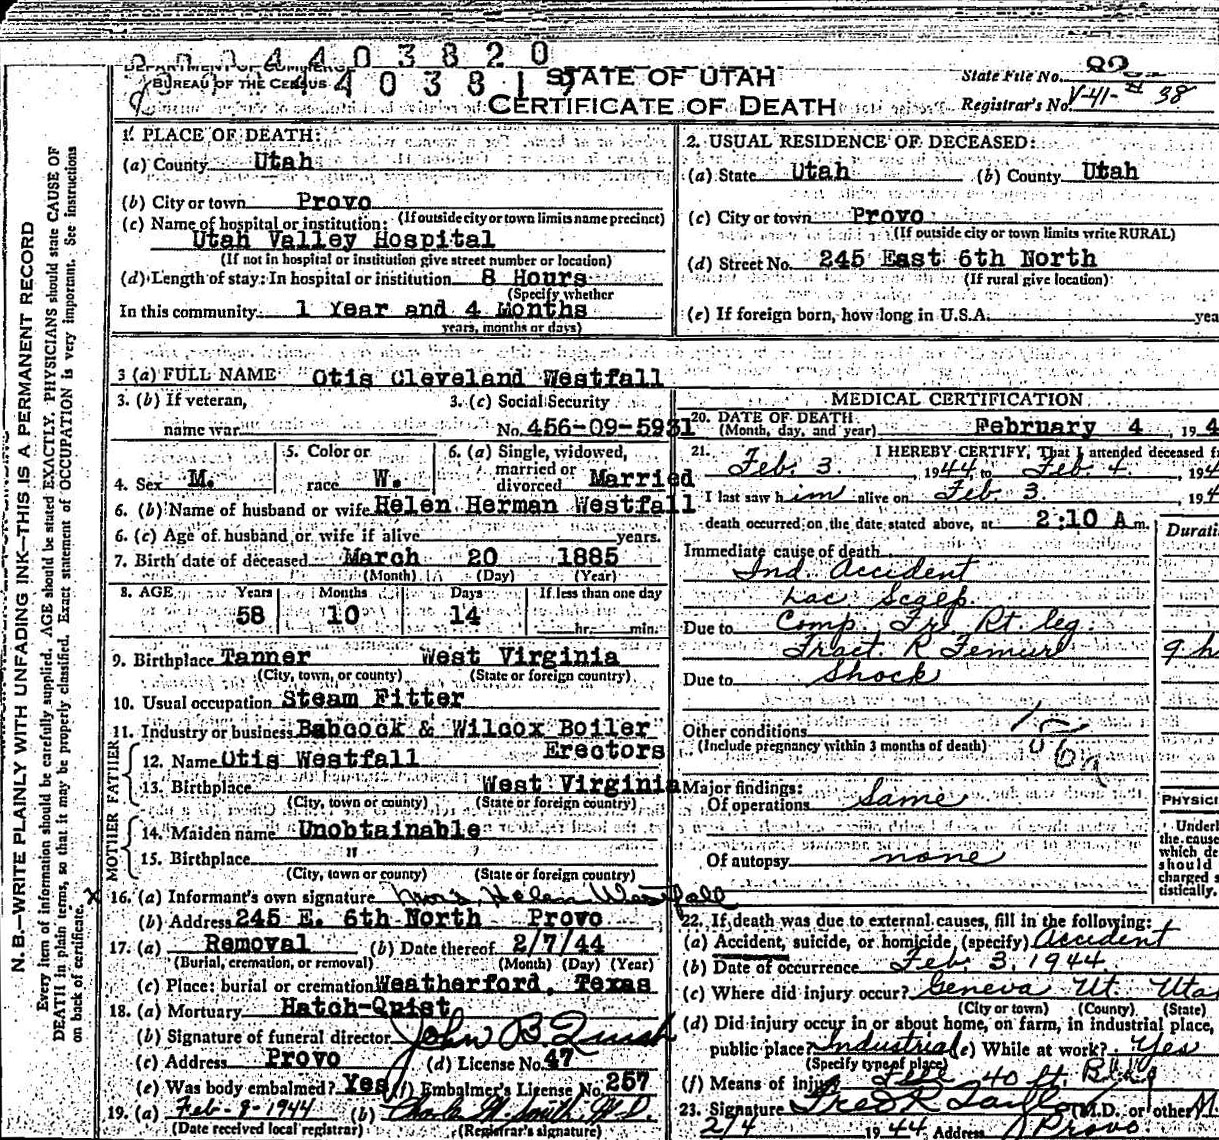 4403820
DEPARTMENT OF COMMERCE
BUREAU OF THE CENSUS
4403819
STATE OF UTAH
CERTIFICATE OF DEATH
State File No.
Registrar's No. V-41- # 38
1. PLACE OF DEATH:
(a) County Utah
(b) City or town Provo
(If outside city or town limits name precinct)
(c) Name of hospital or institution:
Utah Valley Hospital
(If not in hospital or institution give street number or location)
(d) Length of stay: In hospital or institution 8 Hours
(Specify whether
In this community 1 Year and 4 Months
years, months or days)
2. USUAL RESIDENCE OF DECEASED:
(a) State Utah (b) County Utah
(c) City or town Provo
(If outside city or town limits write RURAL)
(d) Street No. 245 East 6th North
(If rural give location)
(e) If foreign born, how long in U.S.A. yea
3 (a) FULL NAME Otis Cleveland Westfall
3. (b) If veteran, 3. (c) Social Security
name war No. 456-09-5931
4. Sex M. 5. Color or race W. 6. (a) Single, widowed, married or divorced Married
6. (b) Name of husband or wife Helen Herman Westfall
6. (c) Age of husband or wife if alive years.
7. Birth date of deceased March 20 1885
(Month) (Day) (Year)
8. AGE Years Months Days If less than one day
58 10 14 hr. min.
9. Birthplace Tanner West Virginia
(City, town, or county) (State or foreign country)
10. Usual occupation Steam Fitter
11. Industry or business Babcock & Wilcox Boiler
Erectors
FATHER
12. Name Otis Westfall
13. Birthplace West Virginia
(City, town or county) (State or foreign country)
MOTHER
14. Maiden name Unobtainable
15. Birthplace "
(City, town or county) (State or foreign country)
16. (a) Informant's own signature Mrs. Helen Westfall
(b) Address 245 E. 6th North Provo
17. (a) Removal (b) Date thereof 2/7/44
(Burial, cremation, or removal) (Month) (Day) (Year)
(c) Place: burial or cremation Weatherford, Texas
18. (a) Mortuary Hatch-Quist
(b) Signature of funeral director John B Quist
(c) Address Provo (d) License No. 47
(e) Was body embalmed? Yes (f) Embalmer's License No. 257
19. (a) Feb-9-1944 (b)
(Date received local registrar) (Registrar's signature)
MEDICAL CERTIFICATION
20. DATE OF DEATH
(Month, day, and year) February 4, 194
21. I HEREBY CERTIFY, That I attended deceased fr
Feb. 3. 1944 to Feb 4. 194
I last saw him alive on Feb. 3. 194
death occurred on the date stated above, at 2:10 A m.
Durati
Immediate cause of death
Ind. Accident
Lac Scalp.
Due to Comp. Fr. Rt. leg.
Fract. R Femur 9 h
Due to Shock
Other conditions
(Include pregnancy within 3 months of death)
Major findings:
Of operations Same
Of autopsy none
PHYSICI
Underl
the cause
which de
should
charged s
tistically.
22. If death was due to external causes, fill in the following:
(a) Accident, suicide, or homicide, (specify) Accident
(b) Date of occurrence Feb. 3, 1944.
(c) Where did injury occur? Geneva Ut. Uta
(City or town) (County) (State)
(d) Did injury occur in or about home, on farm, in industrial place,
public place? Industrial (e) While at work? Yes
(Specify type of place)
(f) Means of injury 40 ft. Bldg
23. Signature Fred R Taylor (M.D. or other) M.
2/4 1944 Address Provo
N. B.—WRITE PLAINLY WITH UNFADING INK—THIS IS A PERMANENT RECORD
Every item of information should be carefully supplied. AGE should be stated EXACTLY. PHYSICIANS should state CAUSE OF
DEATH in plain terms, so that it may be properly classified. Exact statement of OCCUPATION is very important. See instructions
on back of certificate.